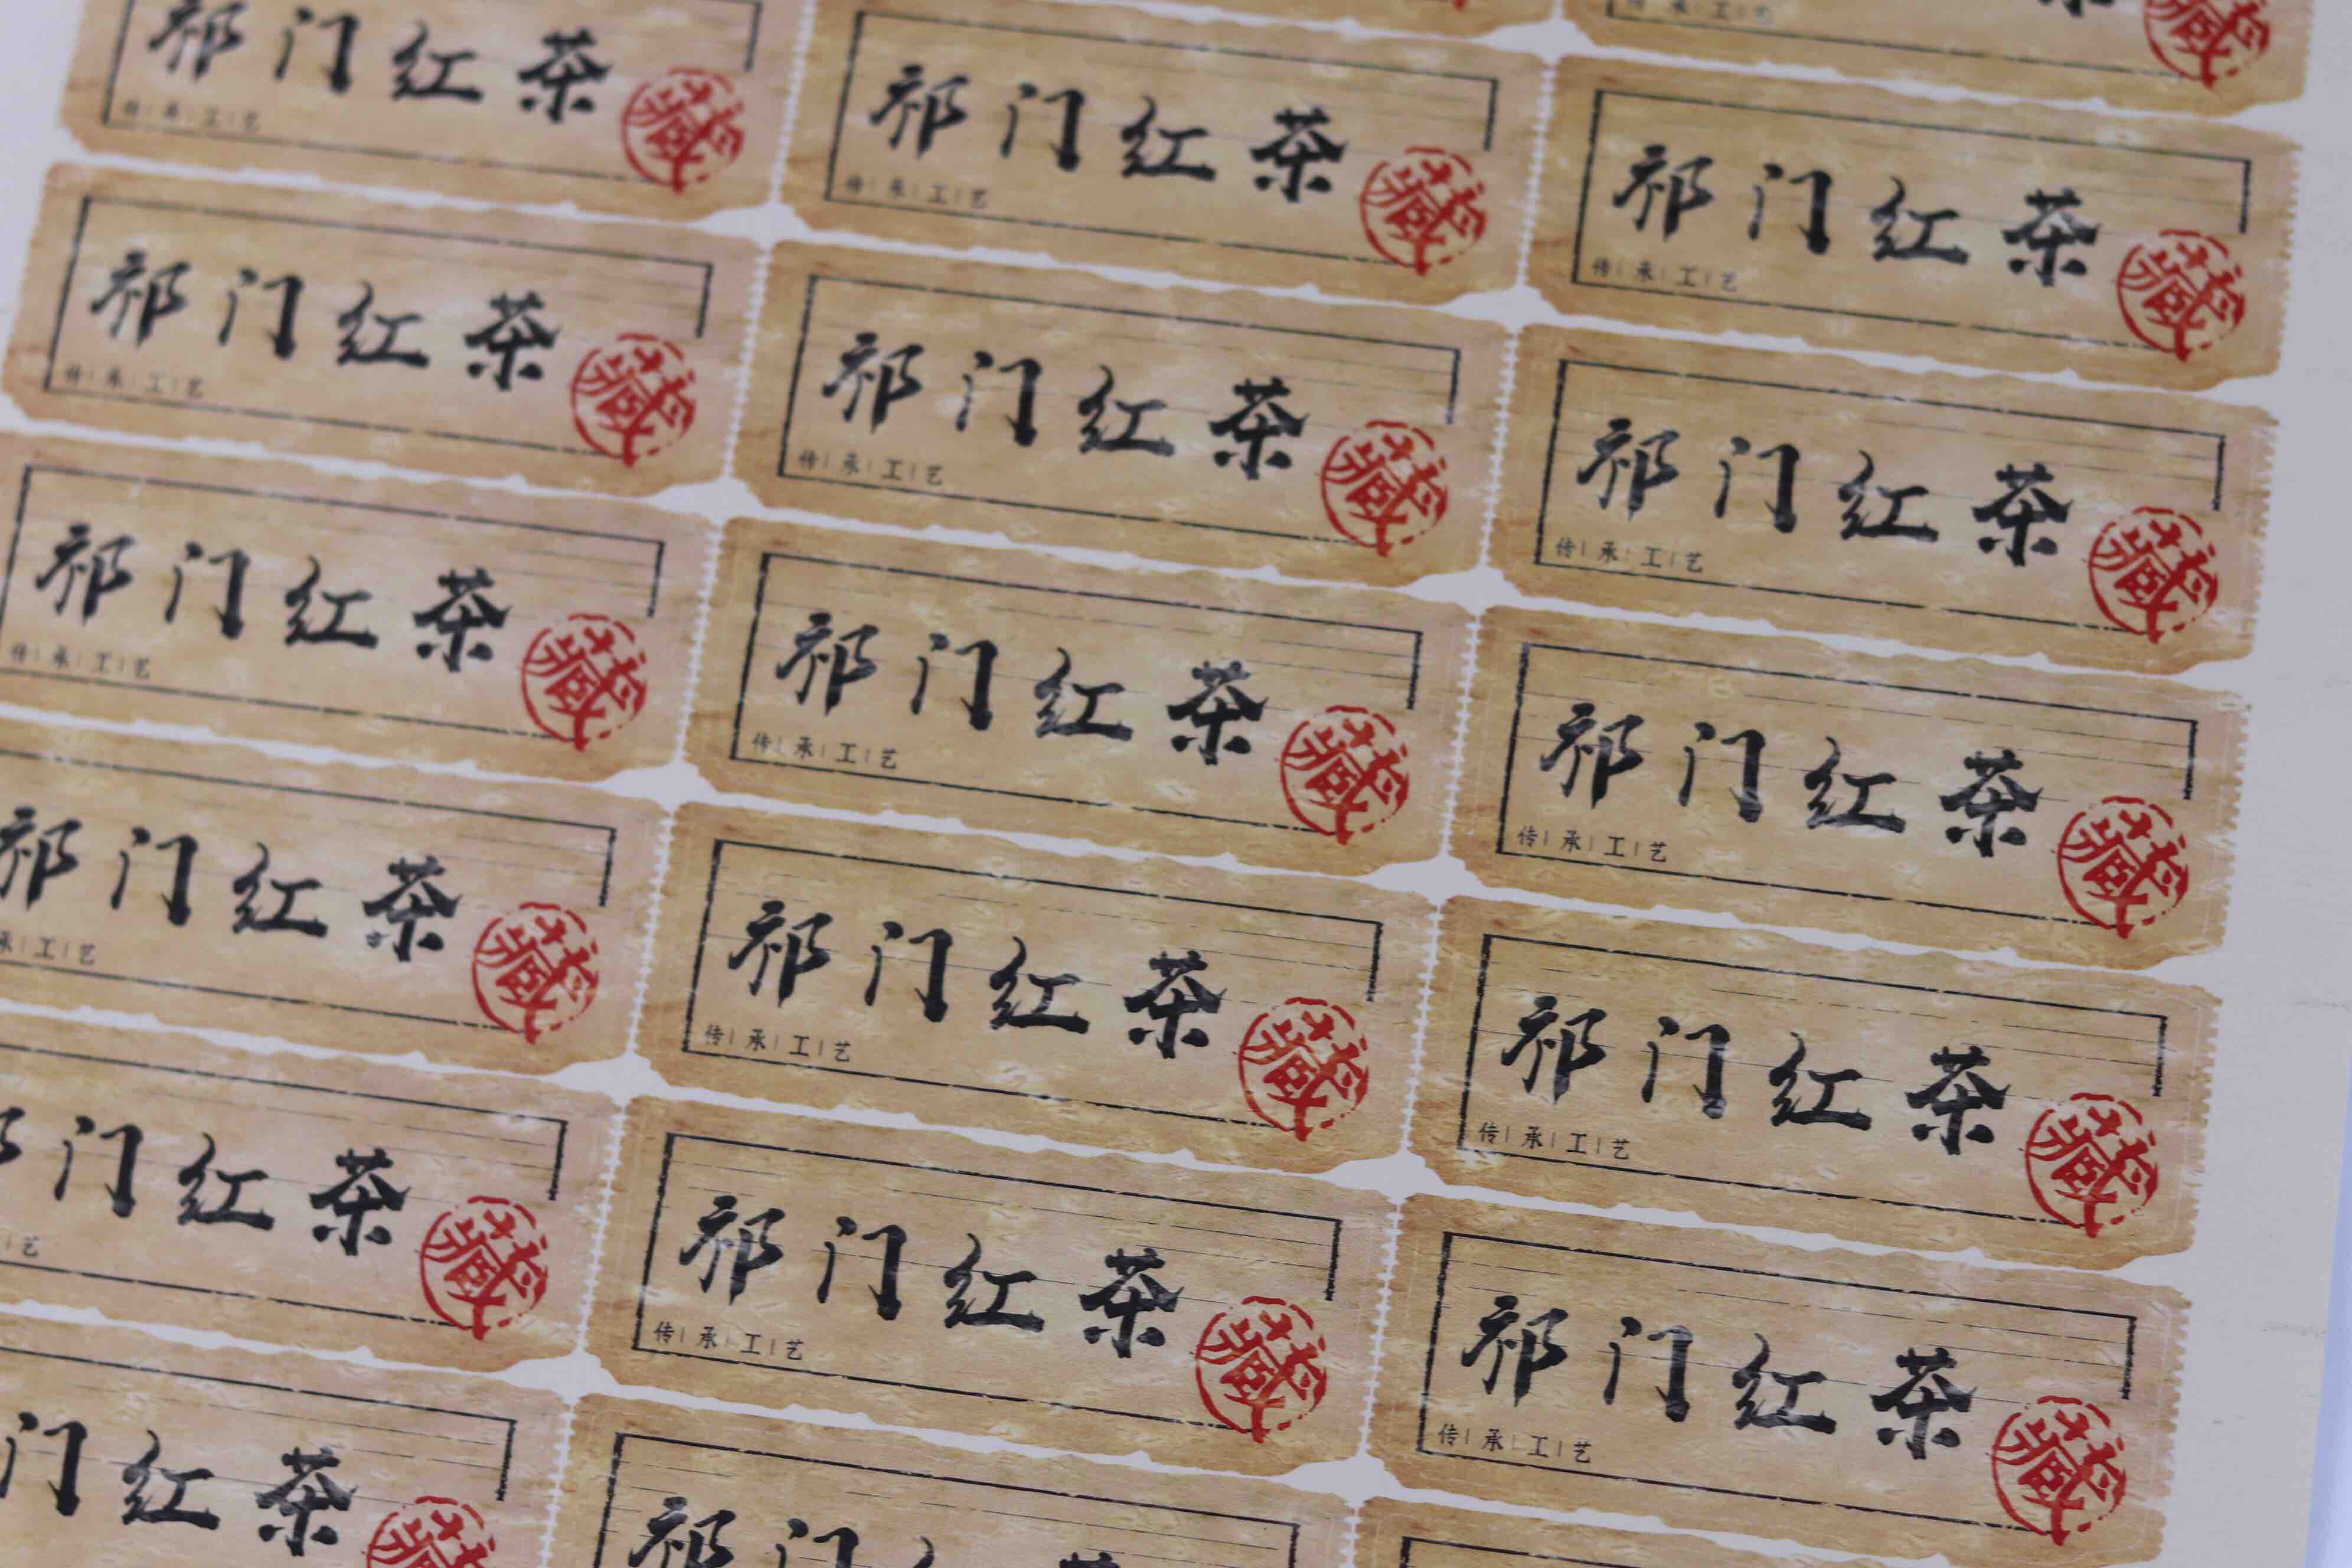 传|承|工|艺
藏
祁门红茶
藏
传|承|工|艺
祁门红茶
藏
传|承|工|艺
祁门红茶
藏
传|承|工|艺
祁门红茶
藏
传|承|工|艺
祁门红茶
藏
传|承|工|艺
祁门红茶
藏
传|承|工|艺
祁门红茶
藏
传|承|工|艺
祁门红茶
藏
传|承|工|艺
祁门红茶
藏
传|承|工|艺
祁门红茶
藏
承|工|艺
祁门红茶
藏
传|承|工|艺
祁门红茶
藏
传|承|工|艺
门红茶
藏
艺
祁门红茶
藏
传|承|工|艺
祁门红茶
藏
传|承|工|艺
门红茶
藏
祁门